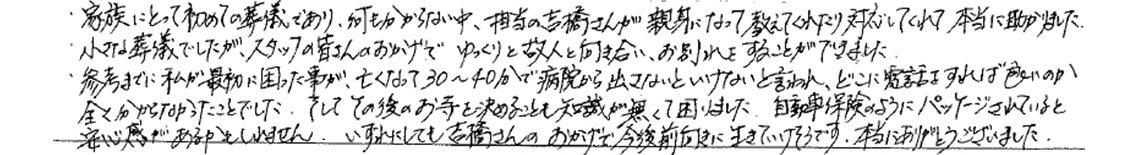 ・家族にとって初めての葬儀であり、何も分からない中、担当の吉橋さんが親身になって教えてくれたり対応してくれて本当に助かりました。
小さな葬儀でしたが、スタッフの皆さんのおかげでゆっくりと故人と向き合い、お別れをすることができました。
・参考までに私が最初に困った事が、亡くなって30〜40分で病院から出さないといけないと言われ、どこに電話をすれば良いのか
全く分からなかったことでした。そしてその後のお寺を決めることも知識が無くて困りました。自動車保険のようにパッケージされていると
安心感があるかもしれません。いずれにしても吉橋さんのおかげで今後前向きに生きていけそうです。本当にありがとうございました。